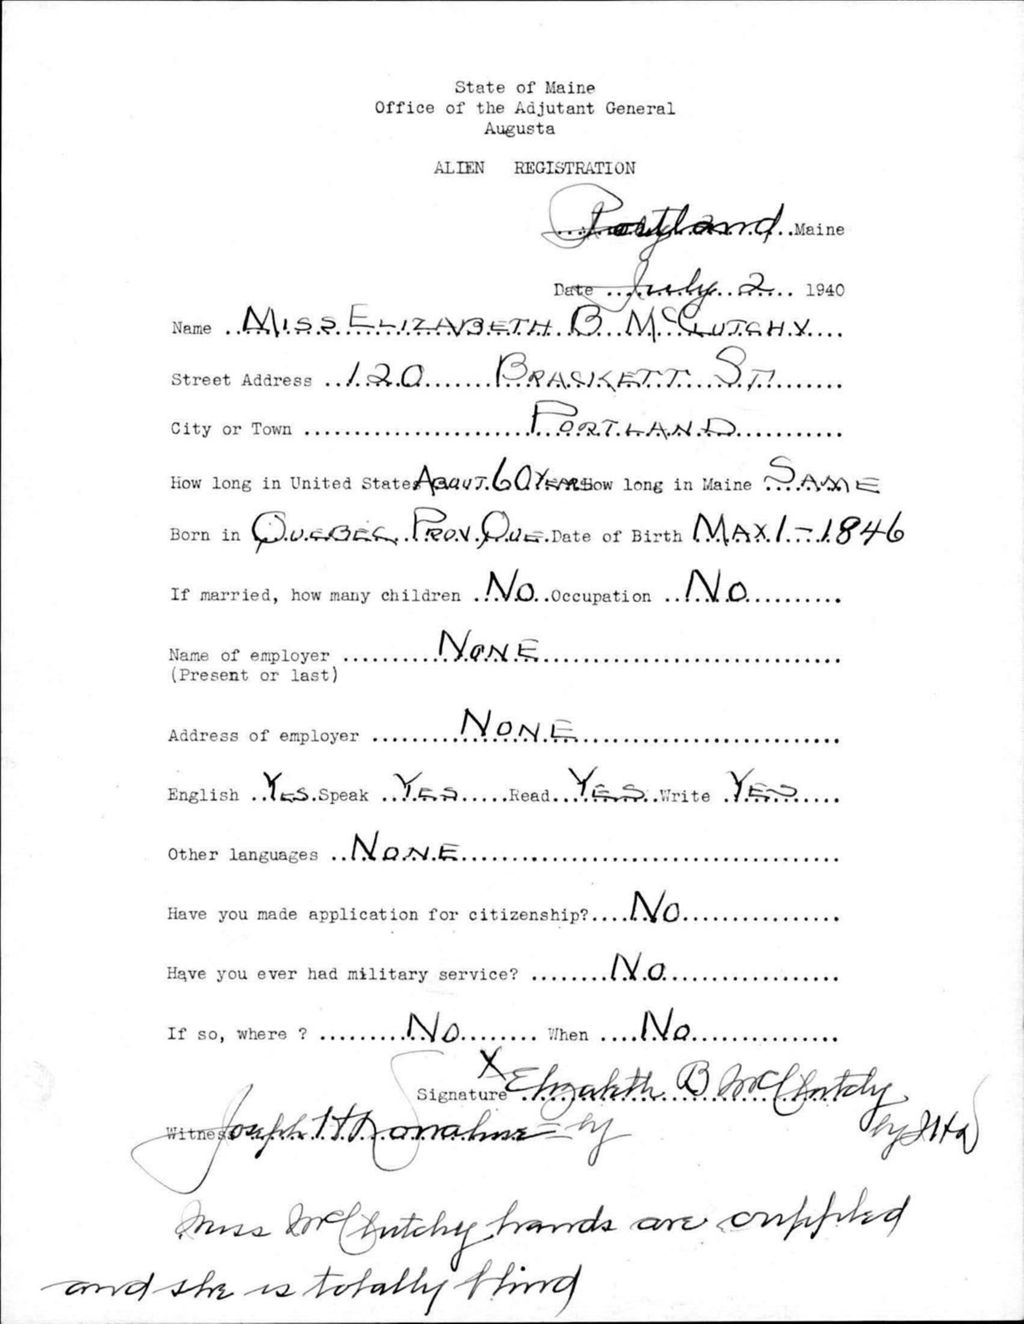 State of Maine
Office of the Adjutant General
Augusta
ALIEN REGISTRATION
Portland Maine
Date July 2 1940
Name Miss Elizabeth B McClutchy
Street Address 120 Brackett St.
City or Town Portland
How long in United States About 60 Years How long in Maine Same
Born in Quebec, Prov. Que. Date of Birth May 1 - 1846
If married, how many children No Occupation No
Name of employer None
(Present or last)
Address of employer None
English Yes Speak Yes Read Yes Write Yes
Other languages None
Have you made application for citizenship? No
Have you ever had military service? No
If so, where ? No When No
X
Signature Elizabeth B McClutchy
Witness Joseph H Donahue - by
by JHD
Miss McClutchy hands are crippled
and she is totally blind